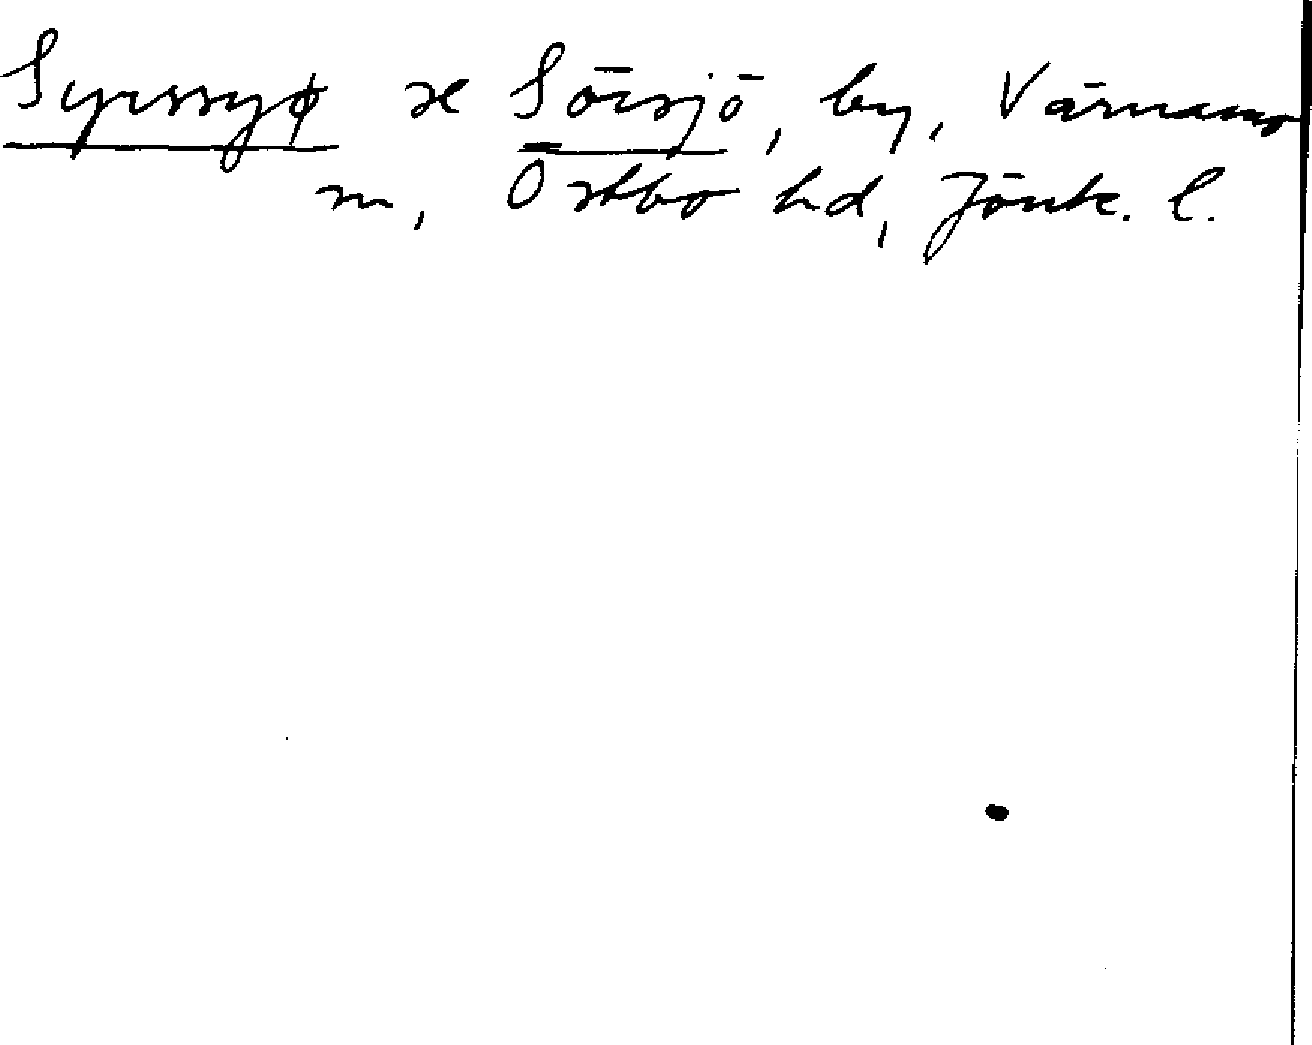 Syrssyø se Sörsjö, by, Värnamo
sn, Östbo hd, Jönk. l.